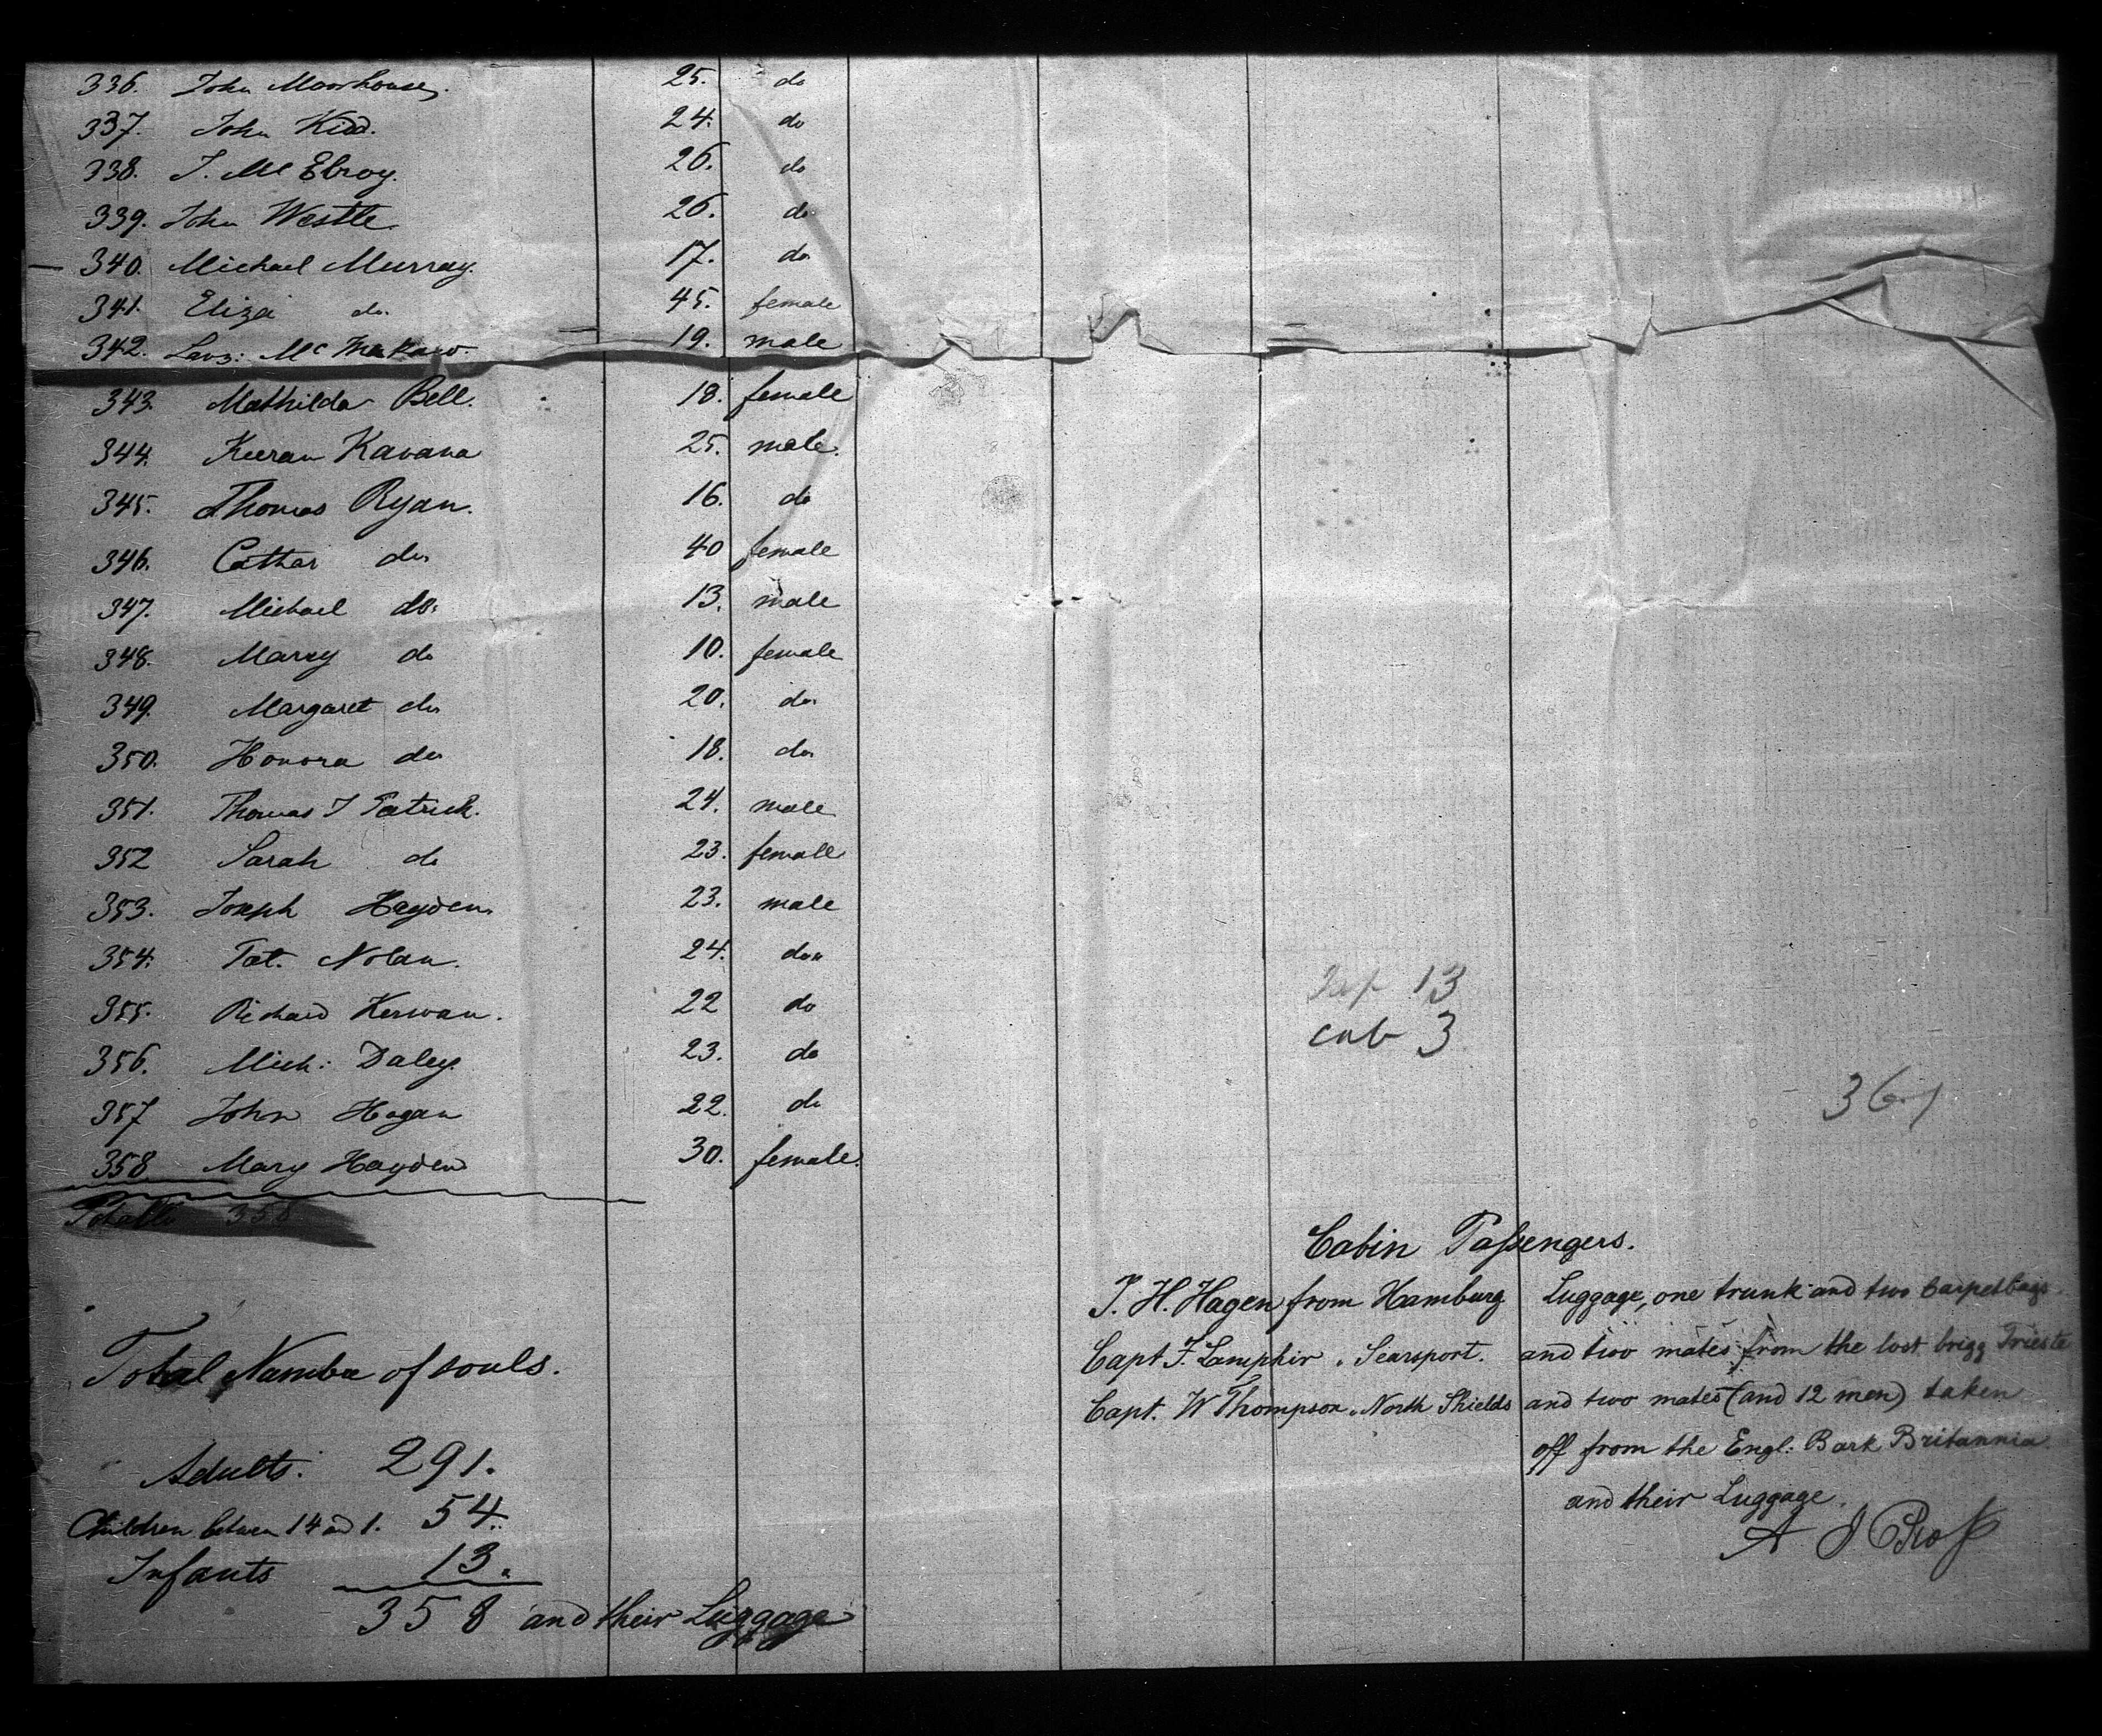 336. John Moorhouse. 25. do
337. John Kidd. 24. do
338. J. Mc Elroy. 26. do
339. John Westle. 26. do
340. Michael Murray. 17. do
341. Eliza do. 45. female
342. 19. male
343. Mathilda Bell. 18. female
344. Keeran Kavana 25. male.
345. Thomas Ryan. 16. do
346. Cathar do. 40 female
347. Michael do. 13. male
348. Marry do 10. female
349. Margaret do 20. do
350. Honora do 18. do
351. Thomas J Patrick. 24. male
352 Sarah do 23. female
353. Joseph Heyden 23. male
354. Pat. Nolan. 24. do
355. Richard Kerwan. 22 do
356. Mich: Daley. 23. do
357 John Hogan 22. do
358 Mary Hayden 30. female.
358
13
cab 3
361
Total Number of souls.
Adults. 291.
Children between 14 and 1. 54.
Infants 13.
358 and their Luggage
Cabin Passengers.
J. H. Hagen from Hamburg Luggage, one trunk and two Carpetbags
Capt F. Lamphir " Searsport. and two mates from the lost brigg Trieste
Capt. W Thompson " North Shields and two mates (and 12 men) taken
off from the Engl. Bark Britannia
and their Luggage.